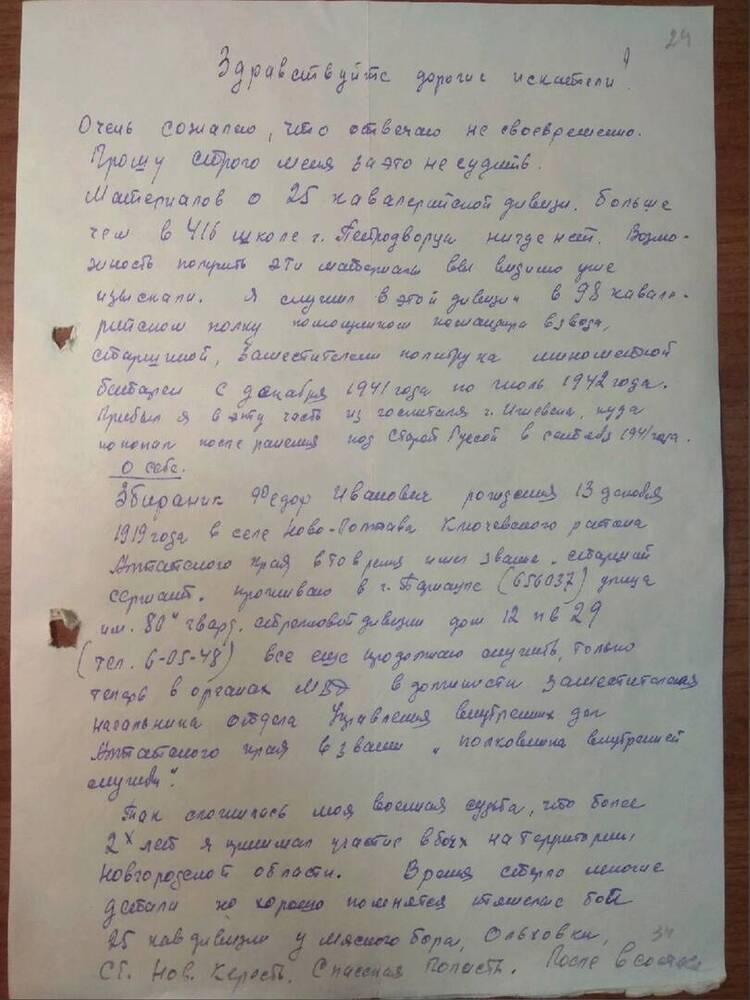 24
Здравствуйте дорогие искатели!
Очень сожалею, что отвечаю не своевременно.
Прошу строго меня за это не судить.
Материалов о 25 кавалерийской дивизи. больше
чем в 416 школе г. Петродворца нигде нет. Возмо-
жность получить эти материалы вы видимо уже
изыскали. Я служил в этой дивизии в 98 кавале-
рийском полку помощником командира взвода,
старшиной, заместителем политрука минометной
батареи с декабря 1941 года по июль 1942 года.
Прибыл я в эту часть из госпиталя г. Ижевска, куда
попал после ранения под Старой Руссой в сентябре 1941 года.
О себе.
Збираник Федор Иванович рождения 13 декабря
1919 года в селе Ново-Полтава Ключевского района
Алтайского края в то время имел звание „старший
сержант". проживаю в г. Барнауле (656037) улица
им. 80й гвард. стрелковой дивизии дом 12 кв 29
(тел. 6-05-48) все еще продолжаю служить, только
теперь в органах МВД в должности заместителя
начальника отдела Управления внутренних дел
Алтайского края в звании „полковника внутренней
службы".
Так сложилась моя военная судьба, что более
2х лет я принимал участие в боях на территории
Новгородской области. Время стерло многие
детали но хорошо помнятся тяжелые бои
25 кавдивизии у мясного бора, Ольховки,
ст. Нов. Кересть, Спасская Полисть. После
34